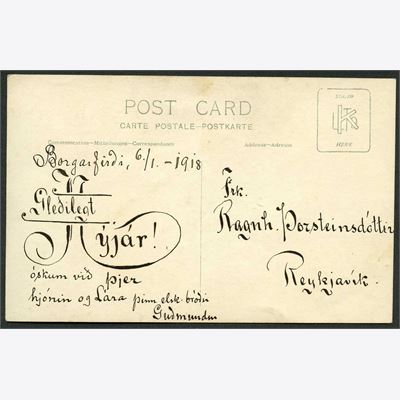 POST CARD
CARTE POSTALE—POSTKARTE
Communication—Mitteilungen—Correspondance
Address—Adresse
HERE
Borgarfirði, 6/1. – 1918
Gleðilegt
Nýjár!
óskum við þjer
hjónin og Lára þinn elsk. bróðir
Guðmundur
Frk.
Ragnh. Þorsteinsdóttir
Reykjavík.